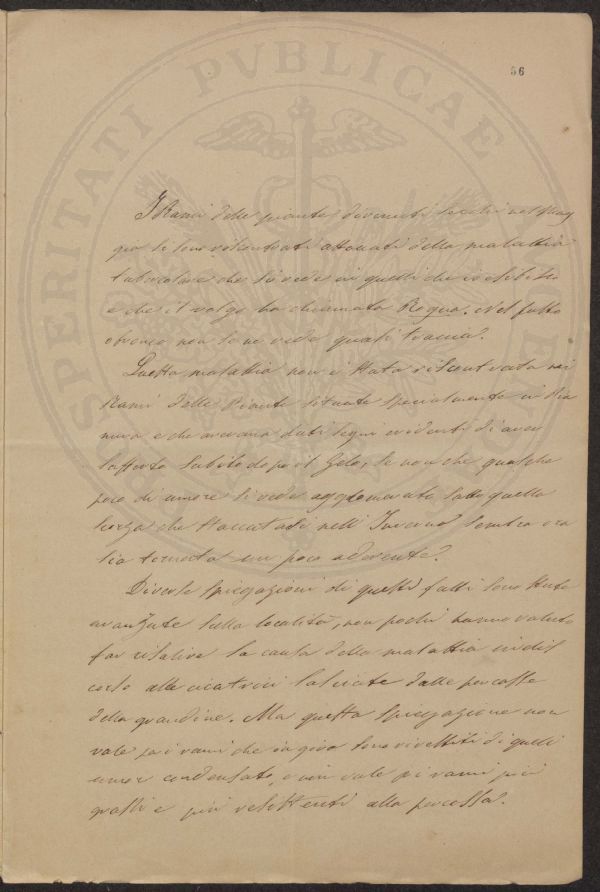 56
PROSPERITATI PVBLICAE AVGENDAE
I Rami delle piante divenuti secchi nel Mag
gio si sono riscontrati attaccati della malattia
tubercolare che si vede in quelli che io esibisco
e che il volgo ha chiamata Rogna. Nel frutto
ebraico non se ne vede quasi traccia.
Questa malattia non è stata riscontrata nei
Rami delle Piante situate specialmente in Pia
nura e che avevano dati segni evidenti di aver
sofferto subito dopo il gelo, se non che qualche
poco di umore si vede agglomerato sotto quella
scorza che staccatasi nell' Inverno sembra ora
sia tornata un poco aderente.
Diverse spiegazioni di questi fatti sono state
avanzate sulla località, non pochi hanno voluto
far risalire la causa della malattia in dis
corso alle cicatrici lasciate dalle percosse
della grandine. Ma questa spiegazione non
vale pei rami che in giro sono rivestiti di quell'
umor condensato, e non vale pei rami più
grossi e più resistenti alla percossa.